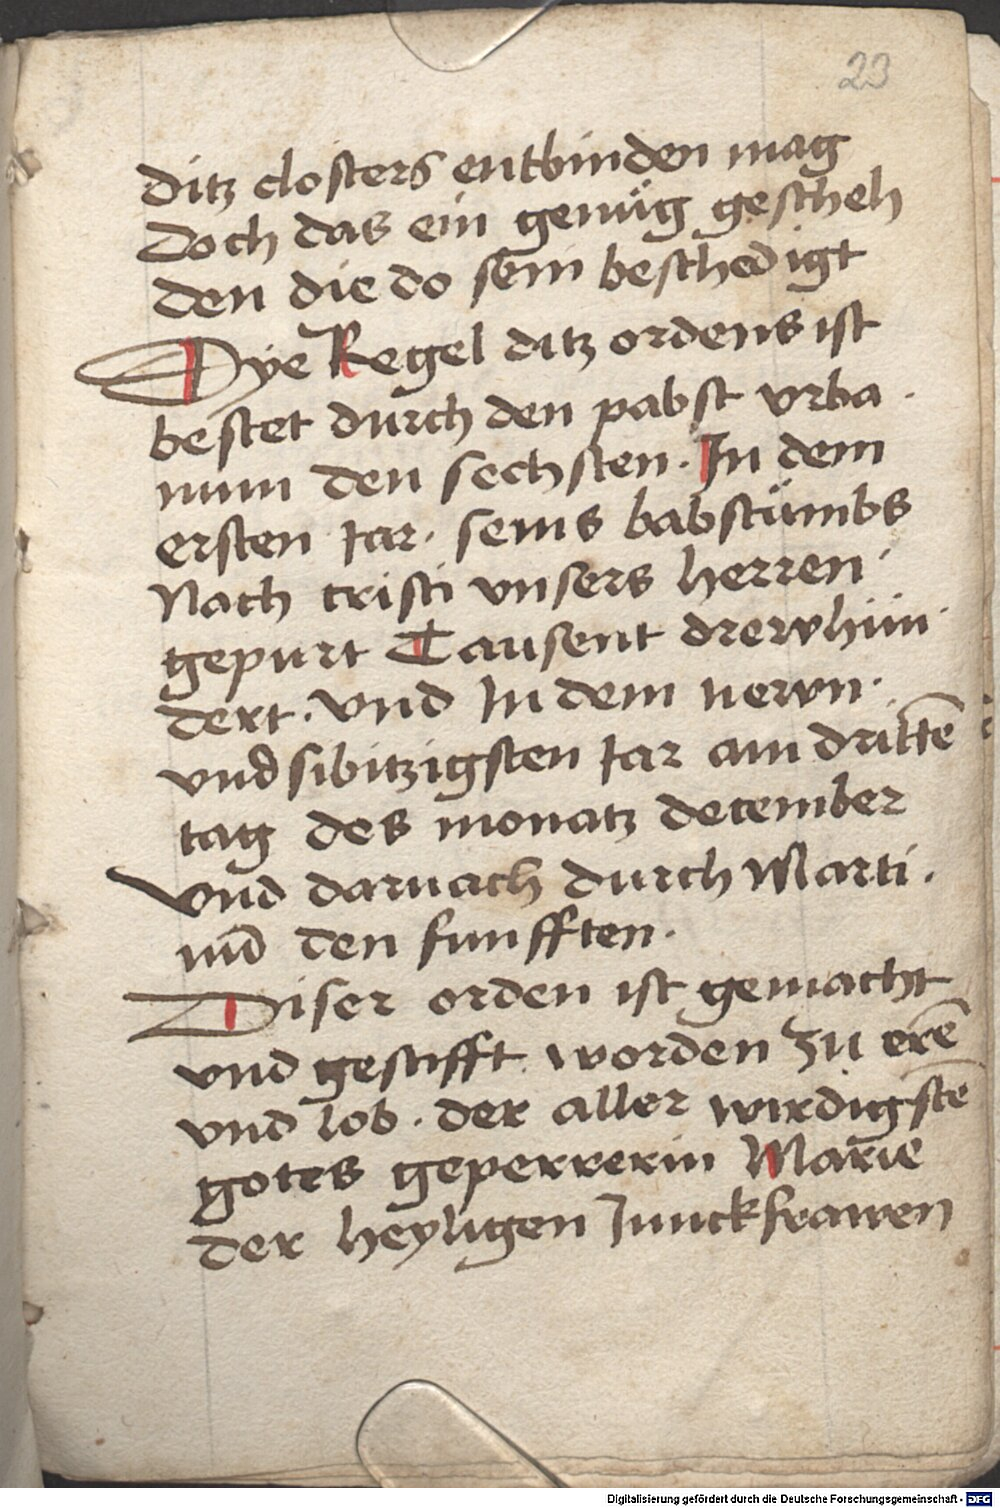 23
ditz closters entbinden mag
Doch das ein genüg gescheh
den die do sein beschedigt
Dye Regel ditz ordens ist
bestet durch den pabst vrba .
num den sechsten . In dem
ersten Iar . seins babstümbs
Nach cristi vnsers herren .
gepurt Tausent drewhün .
dert . vnd In dem newn .
vnd sibitzigsten Iar am drittē
tag des monatz december
vnd darnach durch Marti .
nū den funfften .
Diser orden ist gemacht
vnd gestifft worden zu erē
vnd lob . der aller wirdigstē
gotes geperrerin Marie
der heyligen Iunckfrawen
Digitalisierung gefördert durch die Deutsche Forschungsgemeinschaft - DFG